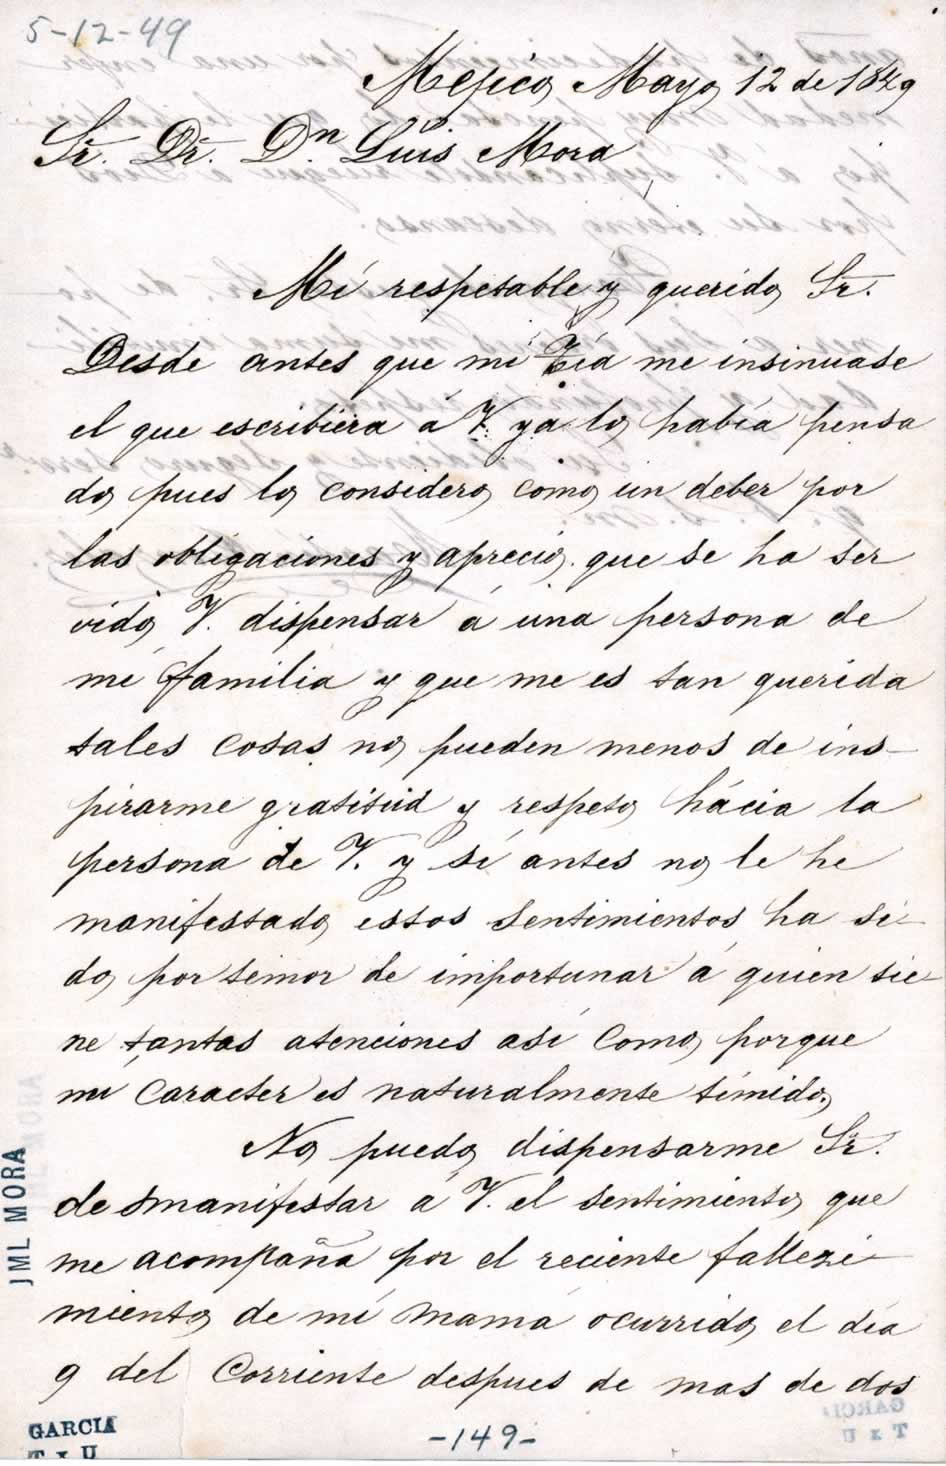 5-12-49
Mejico, Mayo 12 de 1849
Sr. Dr. Dn. Luis Mora
Mí respetable y querido Sr.
Desde antes que mí Tía me insinuase
el que escribiera á V. ya lo había pensa
do pues lo considero como un deber por
las obligaciones y aprecio que se ha ser
vido V. dispensar á una persona de
mi familia y que me es tan querida
tales cosas no pueden menos de ins-
pirarme gratitud y respeto hácia la
persona de V. y sí antes no le he
manifestado estos sentimientos ha si-
do por temor de importunar á quien tie-
ne tantas atenciones así como porque
mi caracter es naturalmente tímido.
No puedo dispensarme Sr.
de manifestar á V. el sentimiento que
me acompaña por el reciente falleci-
miento de mí mamá ocurrido el día
9 del corriente despues de mas de dos
JML MORA
GARCIA
-149-